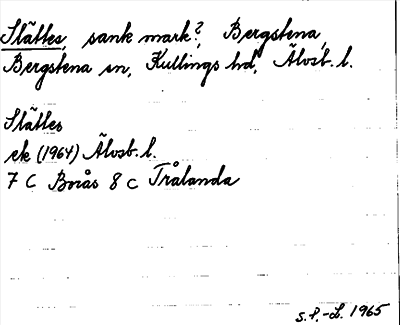 Slättes, sank mark?, Bergstena,
Bergstena sn, Kullings hd, Älvsb. l.
Slättes
ek (1964) Älvsb. l.
7 C Borås 8 c Trålanda
S.P.-L. 1965